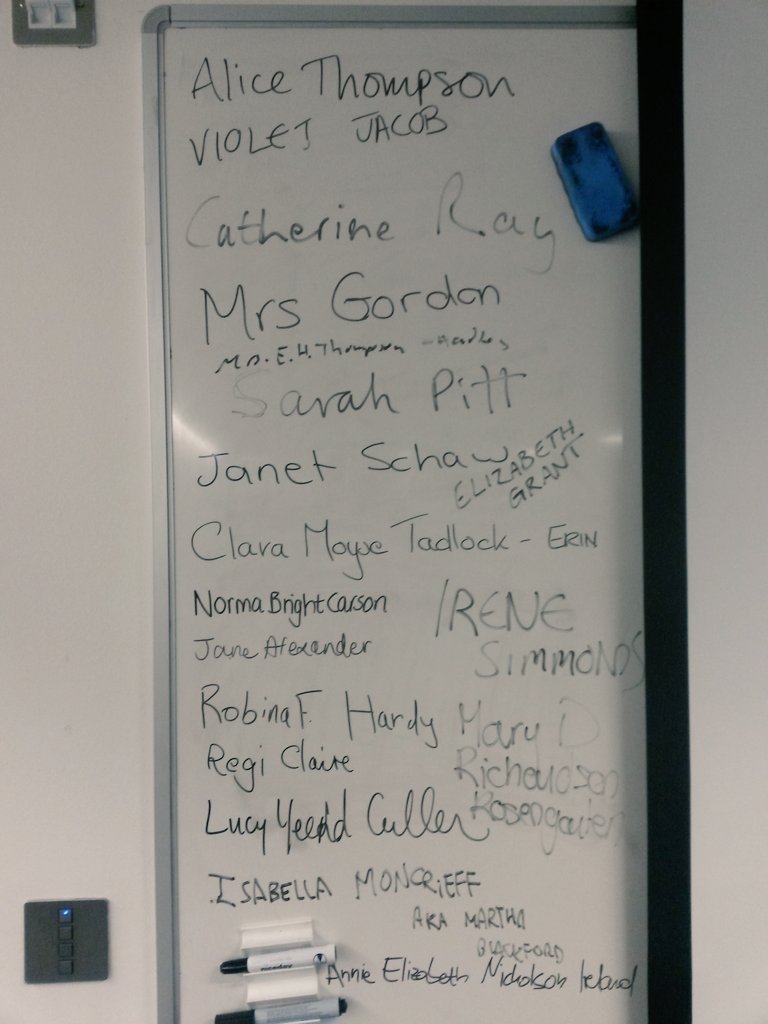 Alice Thompson
VIOLET JACOB
Catherine Ray
Mrs Gordon
Mrs. E.H. Thompson -
Sarah Pitt
Janet Schaw
ELIZABETH
GRANT
Clara Moyse Tadlock - ERIN
Norma Bright Carson
IRENE
SIMMONDS
Jane Alexander
Robina F. Hardy
Mary D
Regi Claire
Richardson
Rosengarten
Lucy Cullen
ISABELLA MONCRIEFF
AKA MARTHA
BLACKFORD
Annie Elizabeth Nicholson Ireland